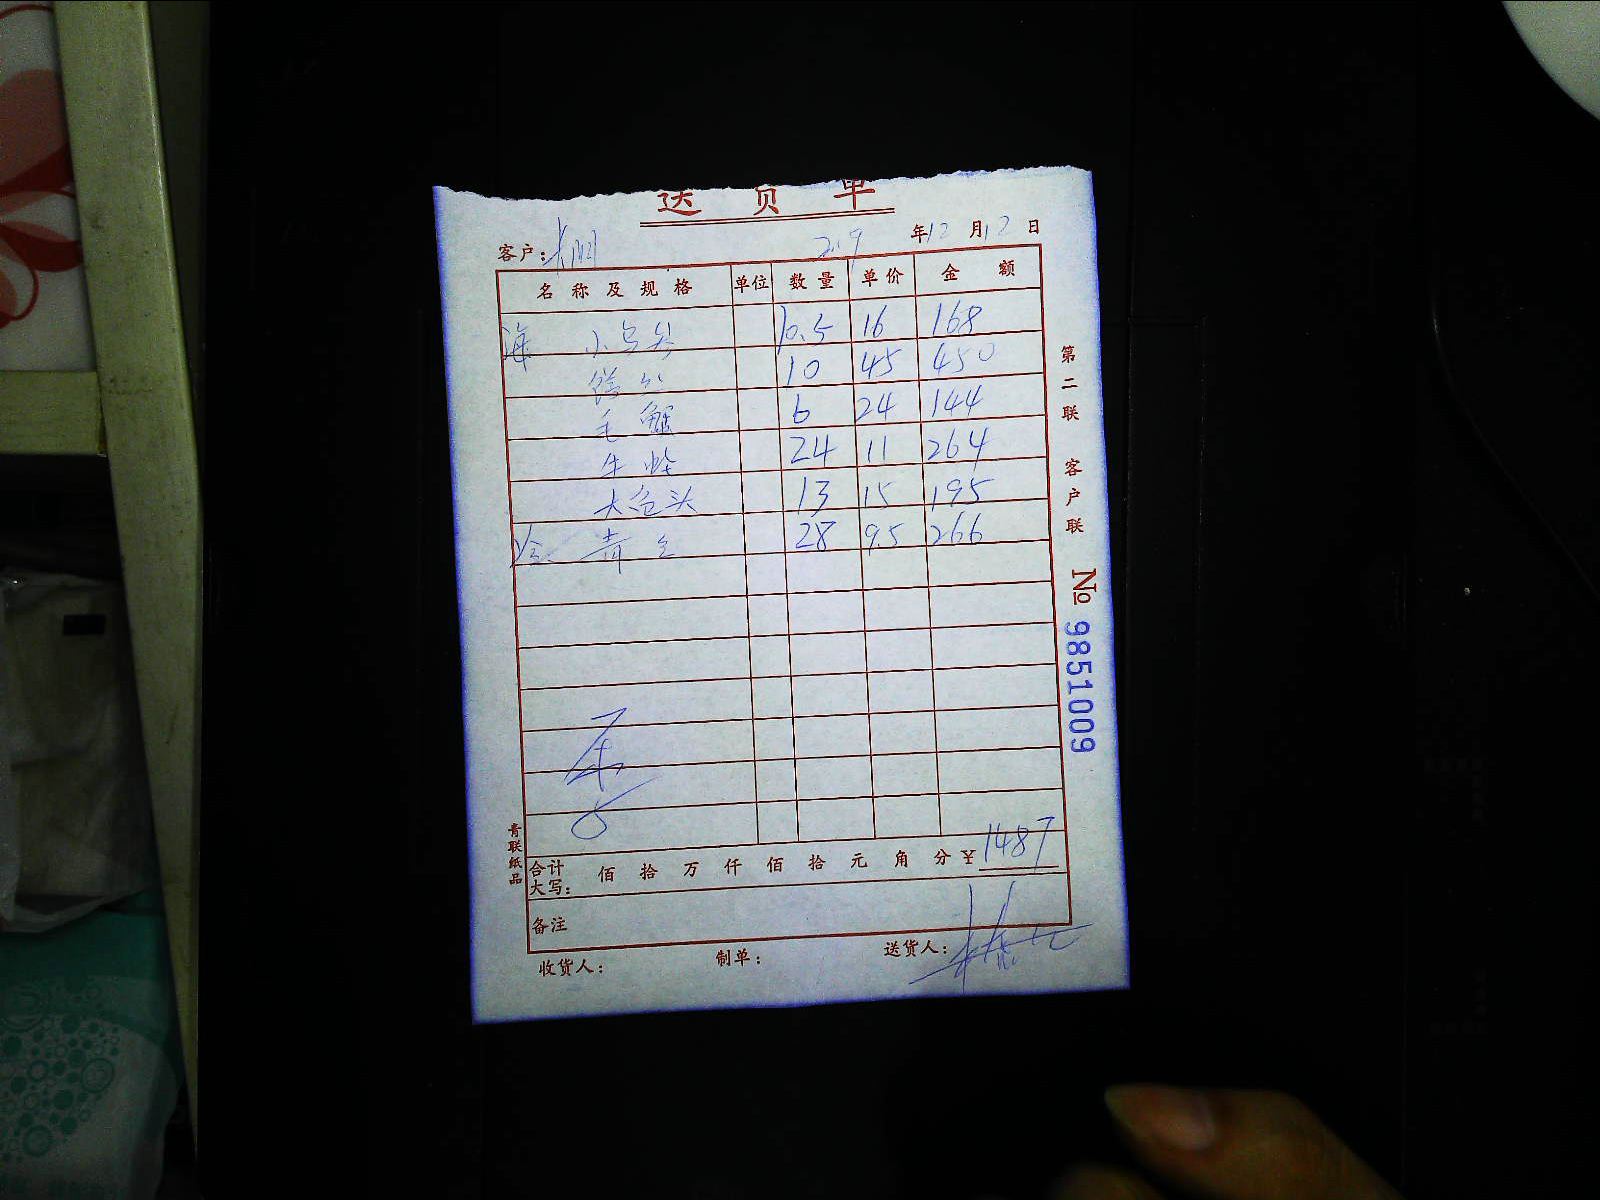 送货单
客户:
2019 年12月12日
名称及规格 单位 数量 单价 金额
海 小乌头 10.5 16 168
10 45 450
毛蟹 6 24 144
24 11 264
大 头 13 15 195
冷 青 28 9.5 266
合计大写: 佰 拾 万 仟 佰 拾 元 角 分 ¥ 1487
备注
收货人: 制单: 送货人:
第二联 客户联
№ 9851009
青联纸品